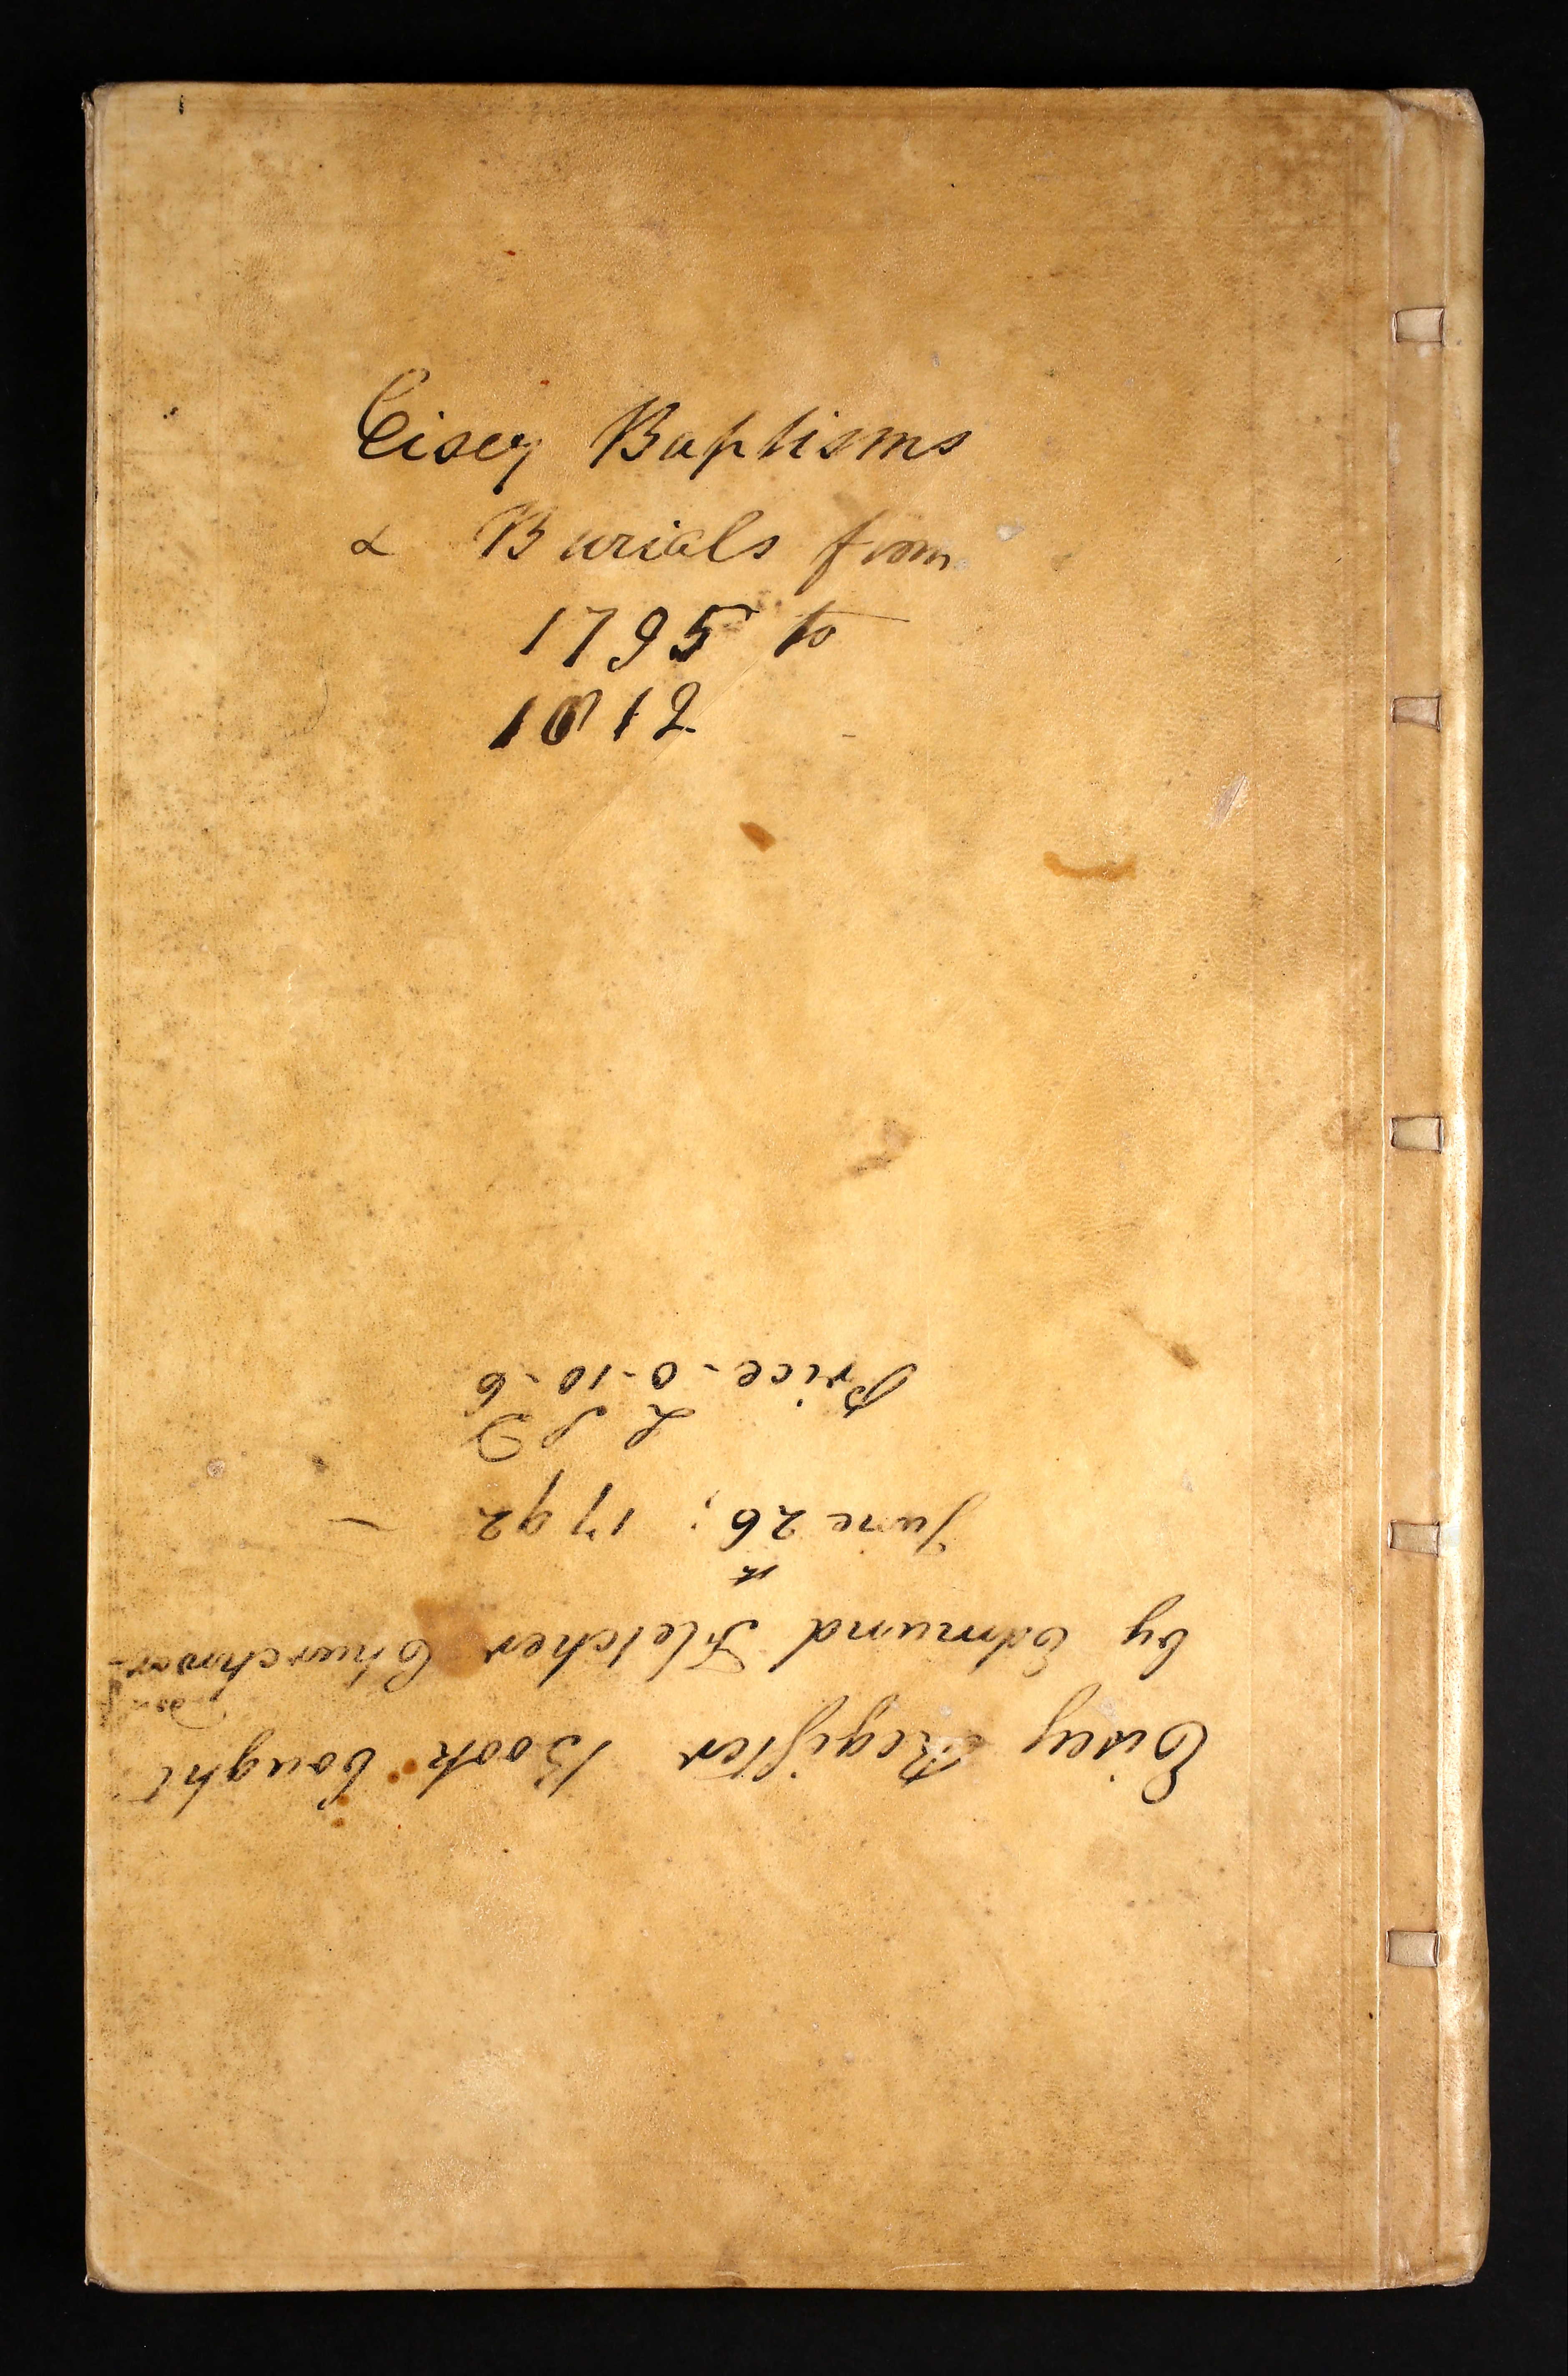 Eisey Baptisms
& Burials from
1795 to
1812
Eisey Register Book bought
by Edmund Fletcher Churchwar-
den
June 26th; 1792
L S D
Price - 0-10-6